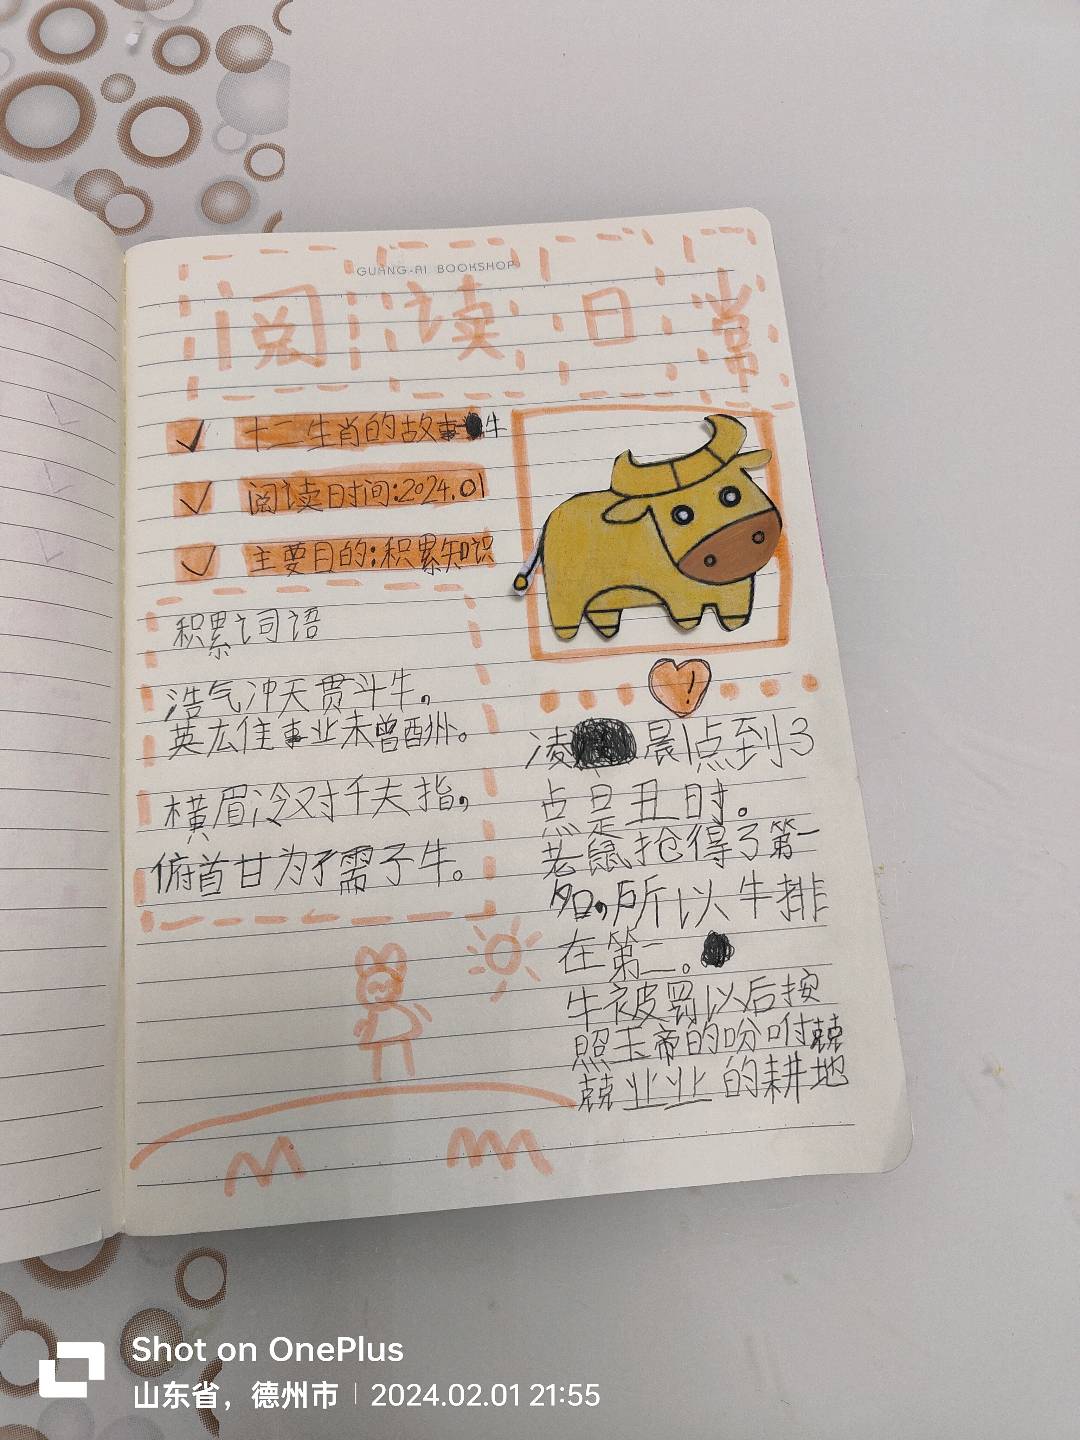 GUANG-AI BOOKSHOP
阅读日常
十二生肖的故事牛
阅读日时间:2024.01
主要目的:积累知识
积累词语
浩气冲天贯斗牛,
英雄事业未曾酬。
横眉冷对千夫指,
俯首甘为孺子牛。
!
凌晨1点到3
点是丑时。
老鼠抢得了第一
名,所以牛排
在第二。
牛被罚以后按
照玉帝的吩咐兢
兢业业的耕地
Shot on OnePlus
山东省，德州市 | 2024.02.01 21:55